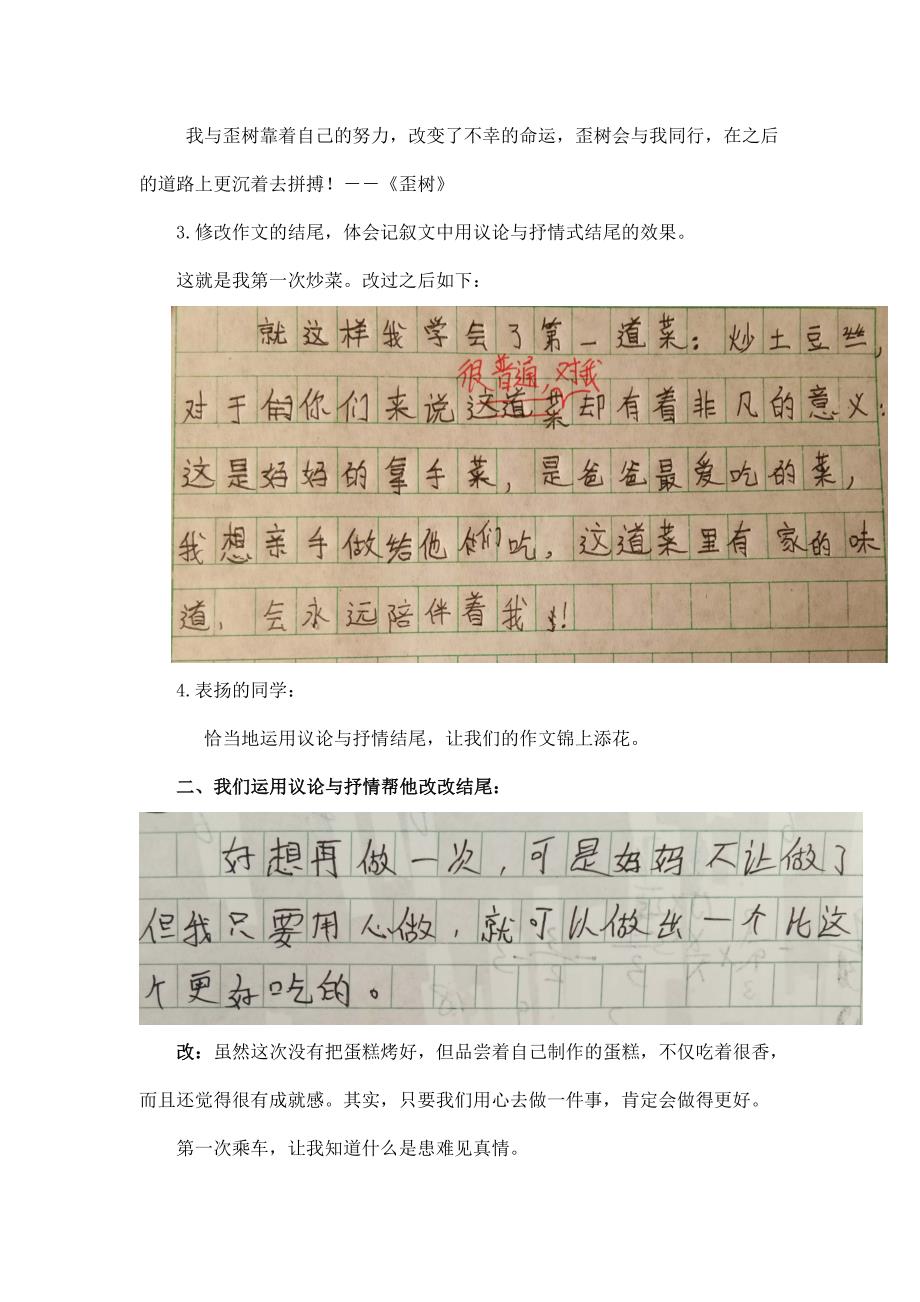 我与歪树靠着自己的努力，改变了不幸的命运，歪树会与我同行，在之后
的道路上更沉着去拼搏！－－《歪树》
3.修改作文的结尾，体会记叙文中用议论与抒情式结尾的效果。
这就是我第一次炒菜。改过之后如下：
就这样我学会了第一道菜：炒土豆丝，
很普通，对我
对于你们来说这道菜却有着非凡的意义：
这是妈妈的拿手菜，是爸爸最爱吃的菜，
我想亲手做给他们吃，这道菜里有家的味
道，会永远陪伴着我！
4.表扬的同学：
恰当地运用议论与抒情结尾，让我们的作文锦上添花。
二、我们运用议论与抒情帮他改改结尾：
好想再做一次，可是妈妈不让做了
但我只要用心做，就可以做出一个比这
个更好吃的。
改：虽然这次没有把蛋糕烤好，但品尝着自己制作的蛋糕，不仅吃着很香，
而且还觉得很有成就感。其实，只要我们用心去做一件事，肯定会做得更好。
第一次乘车，让我知道什么是患难见真情。